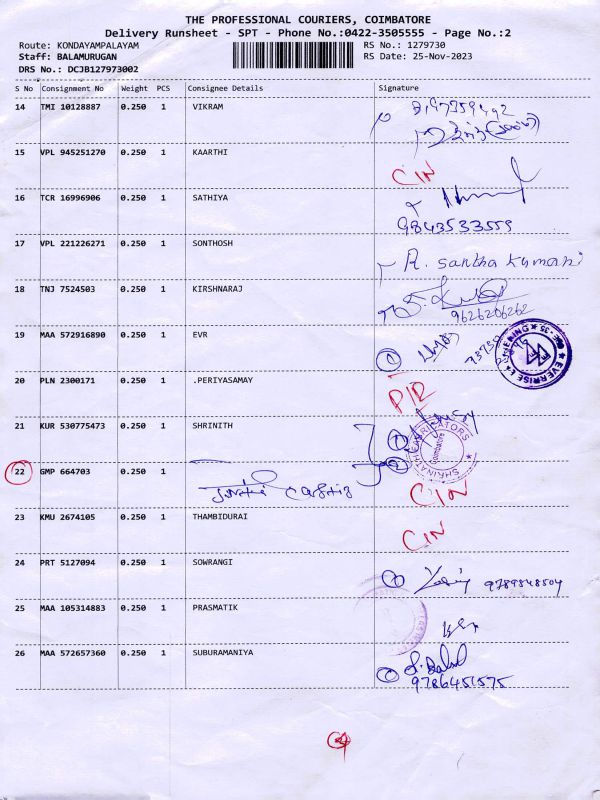 THE PROFESSIONAL COURIERS, COIMBATORE
Delivery Runsheet - SPT - Phone No.:0422-3505555 - Page No.:2
Route: KONDAYAMPALAYAM RS No.: 1279730
Staff: BALAMURUGAN RS Date: 25-Nov-2023
DRS No.: DCJB127973002
S No Consignment No Weight PCS Consignee Details Signature
14 TMI 10128887 0.250 1 VIKRAM
15 VPL 945251270 0.250 1 KAARTHI CIN
16 TCR 16996906 0.250 1 SATHIYA
9843533559
17 VPL 221226271 0.250 1 SONTHOSH R. Santha Kumari
18 TNJ 7524503 0.250 1 KIRSHNARAJ
9626206262
19 MAA 572916890 0.250 1 EVR
20 PLN 2300171 0.250 1 .PERIYASAMAY
21 KUR 530775473 0.250 1 SHRINITH
22 GMP 664703 0.250 1 CIN
23 KMU 2674105 0.250 1 THAMBIDURAI CIN
24 PRT 5127094 0.250 1 SOWRANGI 9789848504
25 MAA 105314883 0.250 1 PRASMATIK
26 MAA 572657360 0.250 1 SUBURAMANIYA
9786451575